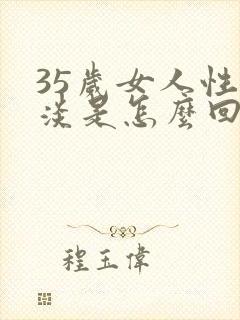 35歲女人性
淡是怎麼回
程玉偉